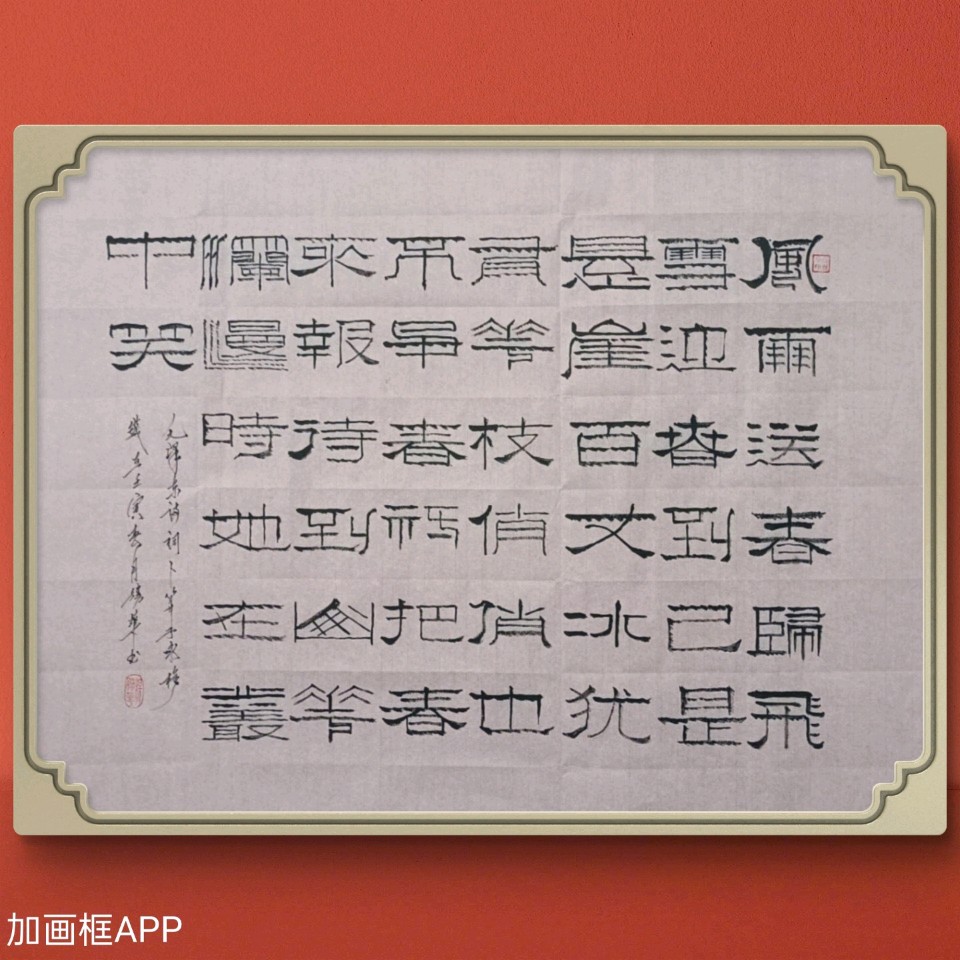 風雨送春歸飛
雪迎春到已是
悬崖百丈冰猶
有花枝俏俏也
不爭春祗把春
來報待到山花
爛漫時她在叢
中笑
毛澤东詩詞卜算子咏梅
歲在壬寅春月書
加画框APP